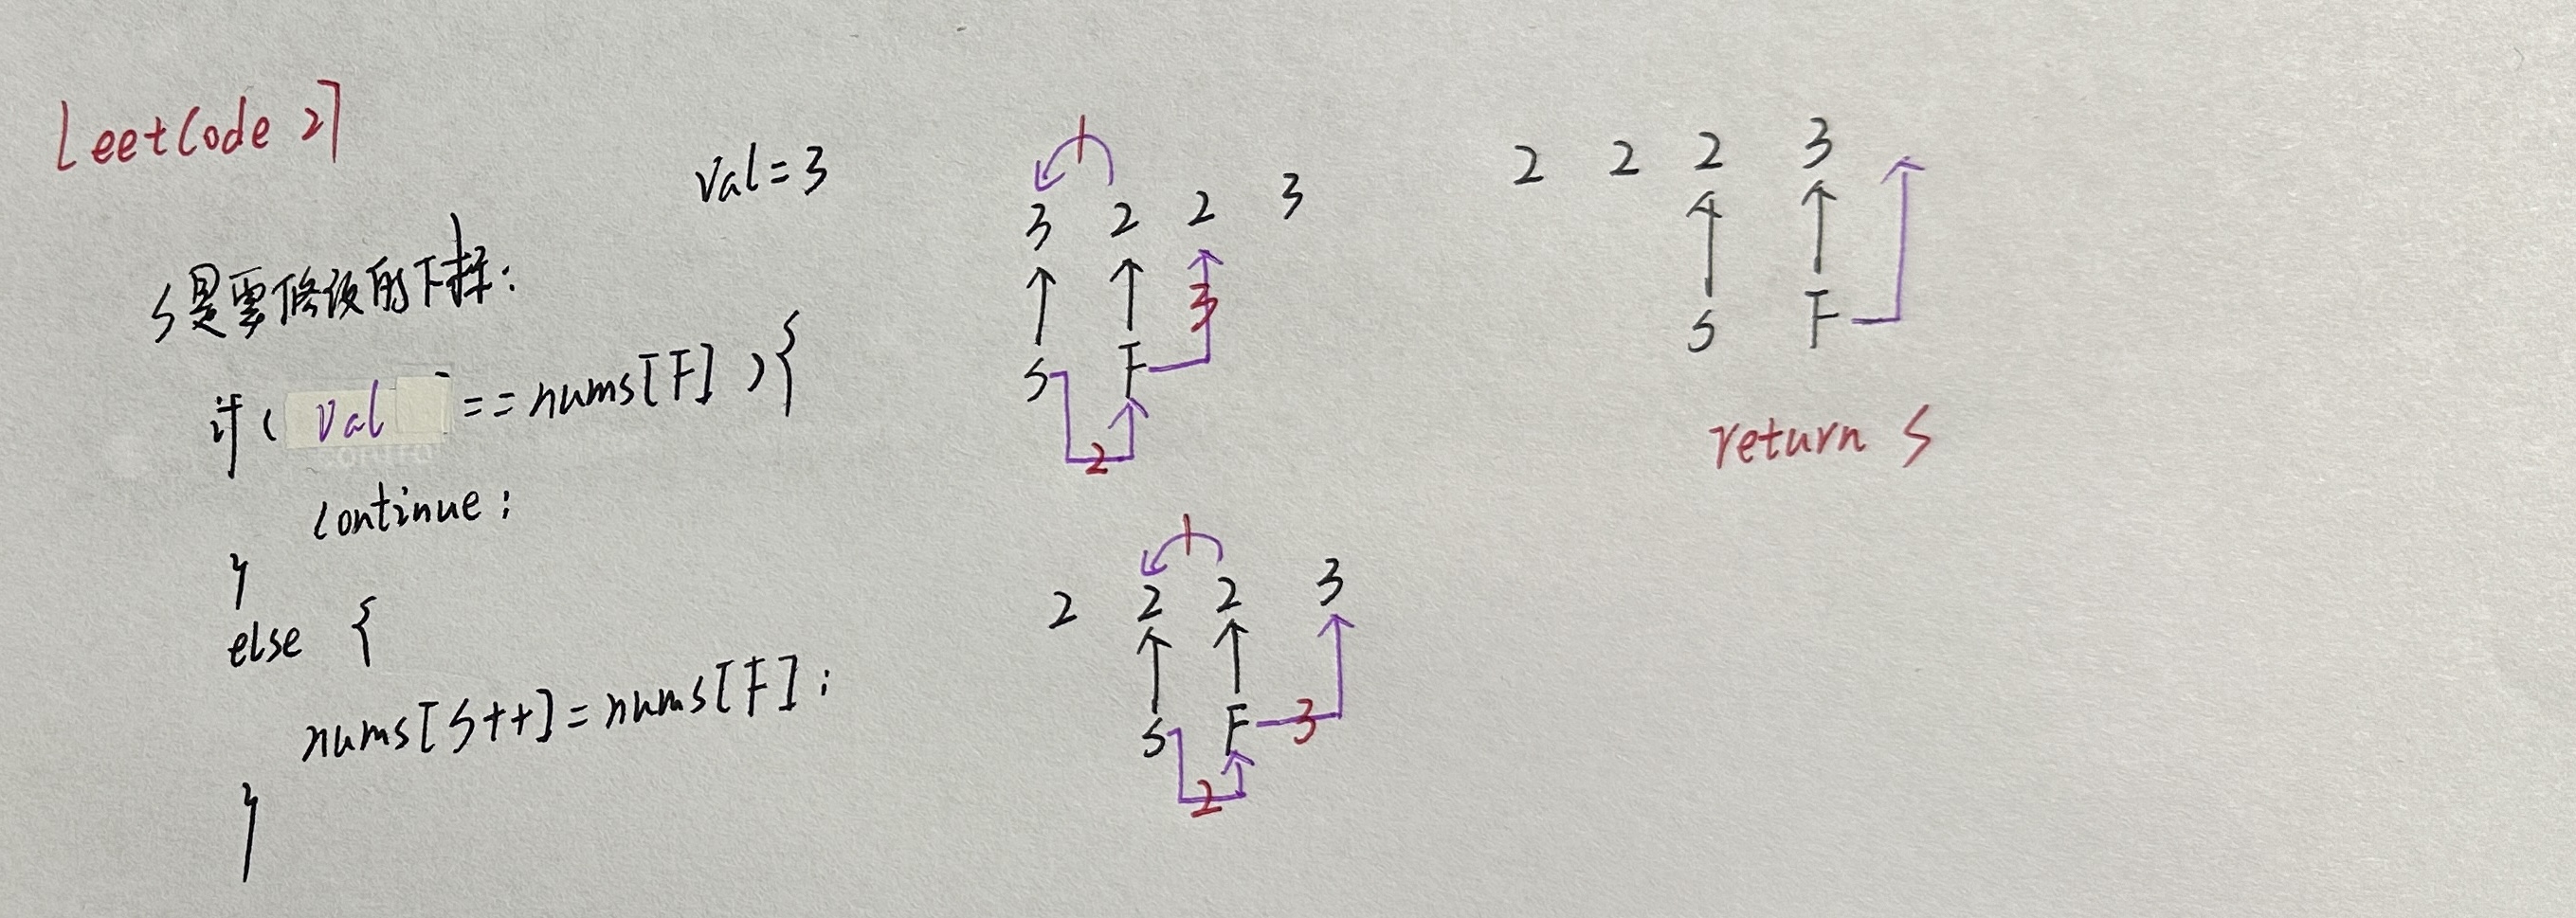 LeetCode 27
val=3
S是要修改的下标:
if( val ==nums[F] ){
continue;
}
else {
nums[S++]=nums[F];
}
1
3 2 2 3
3
S F
2
1
2 2 2 3
S F 3
2
2 2 2 3
S F
return S